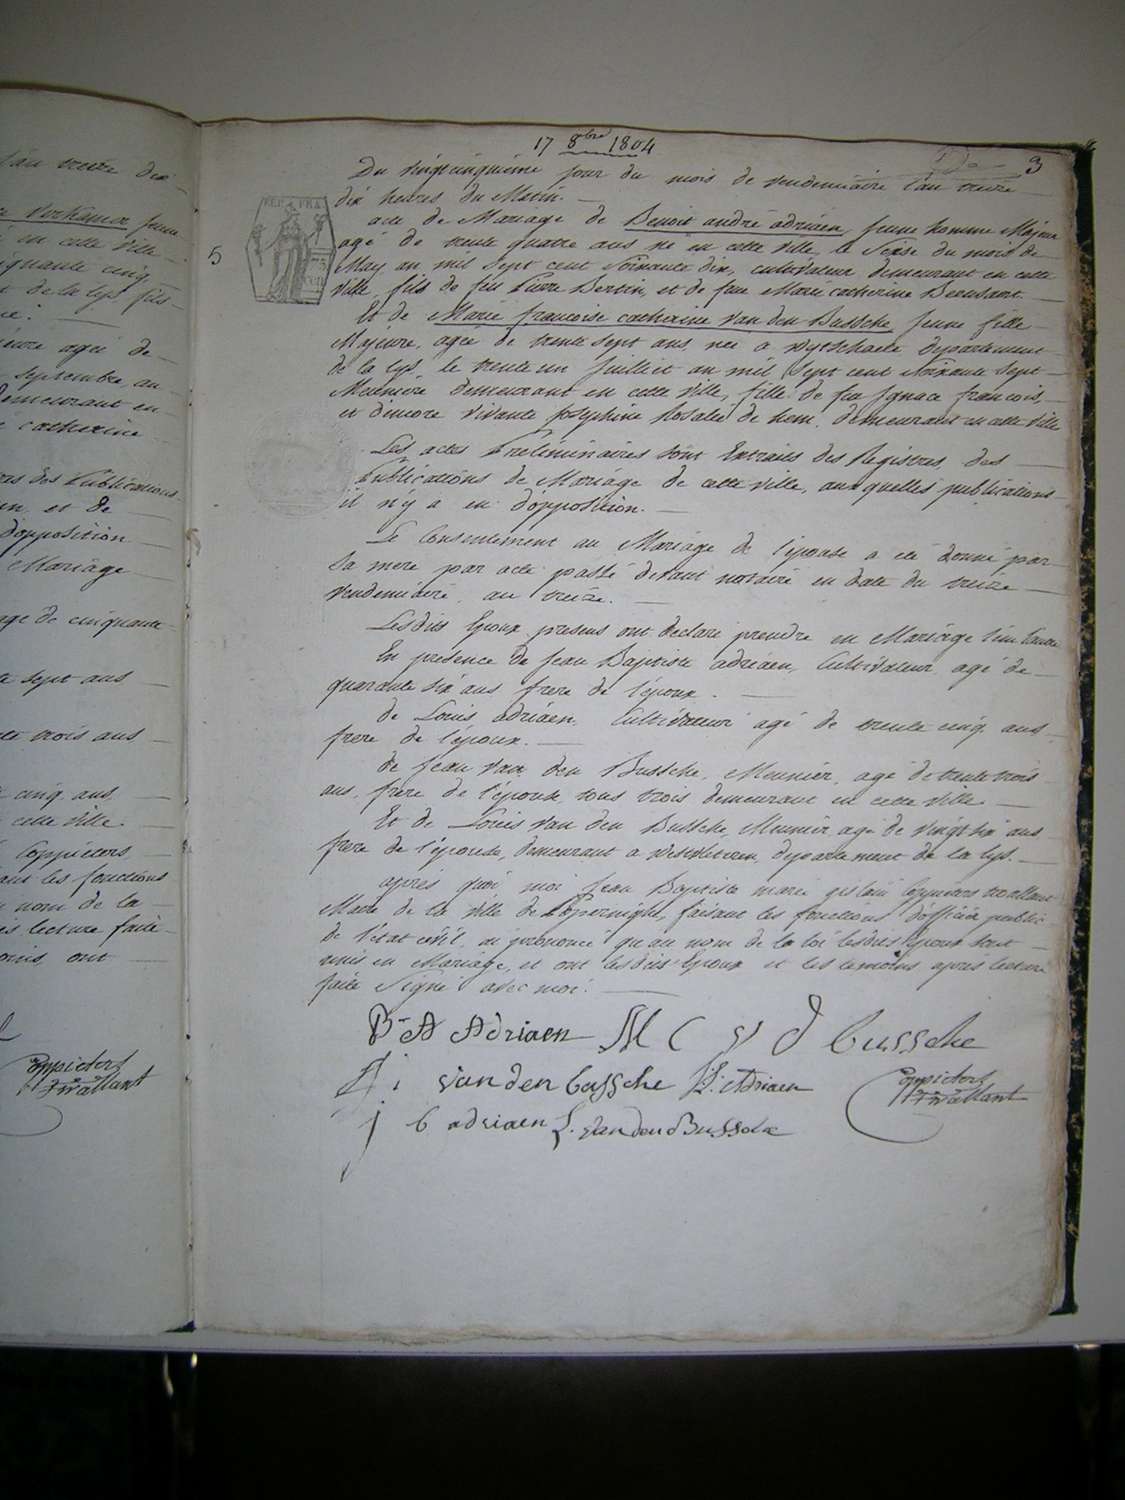 17 8bre 1804
3
Du vingtcinquieme jour du mois de vendemiaire l'an treize
dix heures du Matin.
5
REP FRA
acte de Mariage de Benoit andré adriaen, jeune homme Majeur
agé de trente quatre ans né en cette ville le Seize du mois de
May an mil sept cent Soixante dix, cultivateur demeurant en cette
ville, fils de feu Pierre Bertin, et de feue Marie catherine
Et de Marie francoise catherine van den Bussche jeune fille
Majeure, agée de trente sept ans, née a wytschaete departement
de la lys, le trente un Juillet an mil sept cent soixante sept
Meuniere demeurant en cette ville, fille de feu Ignace francois,
et d'encore vivante josephine Rosalie de hem, demeurant en cette ville
Les actes Preliminaires sont Extraits des Registres des
Publications de Mariage de cette ville, aux quelles publications
il n'y a eu d'opposition.
Le Consentement au Mariage de l'epouse a été donné par
Sa mere par acte passé devant notaire en date du treize
vendemiaire an treize.
Lesdits Epoux presens ont declaré prendre en Mariage l'un l'autre
En presence de jean Baptiste adriaen, Cultivateur agé de
quarante six ans frere de l'époux.
de Louis adriaen Cultivateur agé de trente cinq ans
frere de l'époux.
de jean van den Bussche, Meunier, agé de trente trois
ans, frere de l'épouse, tous trois demeurant en cette ville
Et de Louis van den Bussche Meunier agé de vingt six ans
frere de l'épouse, demeurant a Westvleteren, departement de la lys.
après quoi moi jean Baptiste marie gislain Coppieters twallant
Maire de la ville de Poperinghe, faisant les fonctions d'officier public
de l'état civil, ai prononcé qu'au nom de la loi lesdits Epoux sont
unis en Mariage, et ont lesdits Epoux et les temoins après lecture
faite Signé avec moi.
B A Adriaen M C V d bussche
van den bussche L: Adriaen
Coppieters
twallant
j b adriaen L. VandenBussche
l'an treize dix
Verkamer jeune
en cette ville
cinquante cinq
de la lys fils
agée de
septembre an
demeurant en
catherine
des Publications
et de
d'opposition
Mariage
age de cinquante
sept ans
trois ans
cinq ans
cette ville
Coppieters
les fonctions
nom de la
lecture faite
ont
Coppieters
twallant